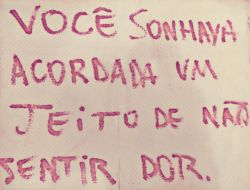 VOCÊ SONHAVA
ACORDADA UM
JEITO DE NÃO
SENTIR DOR.